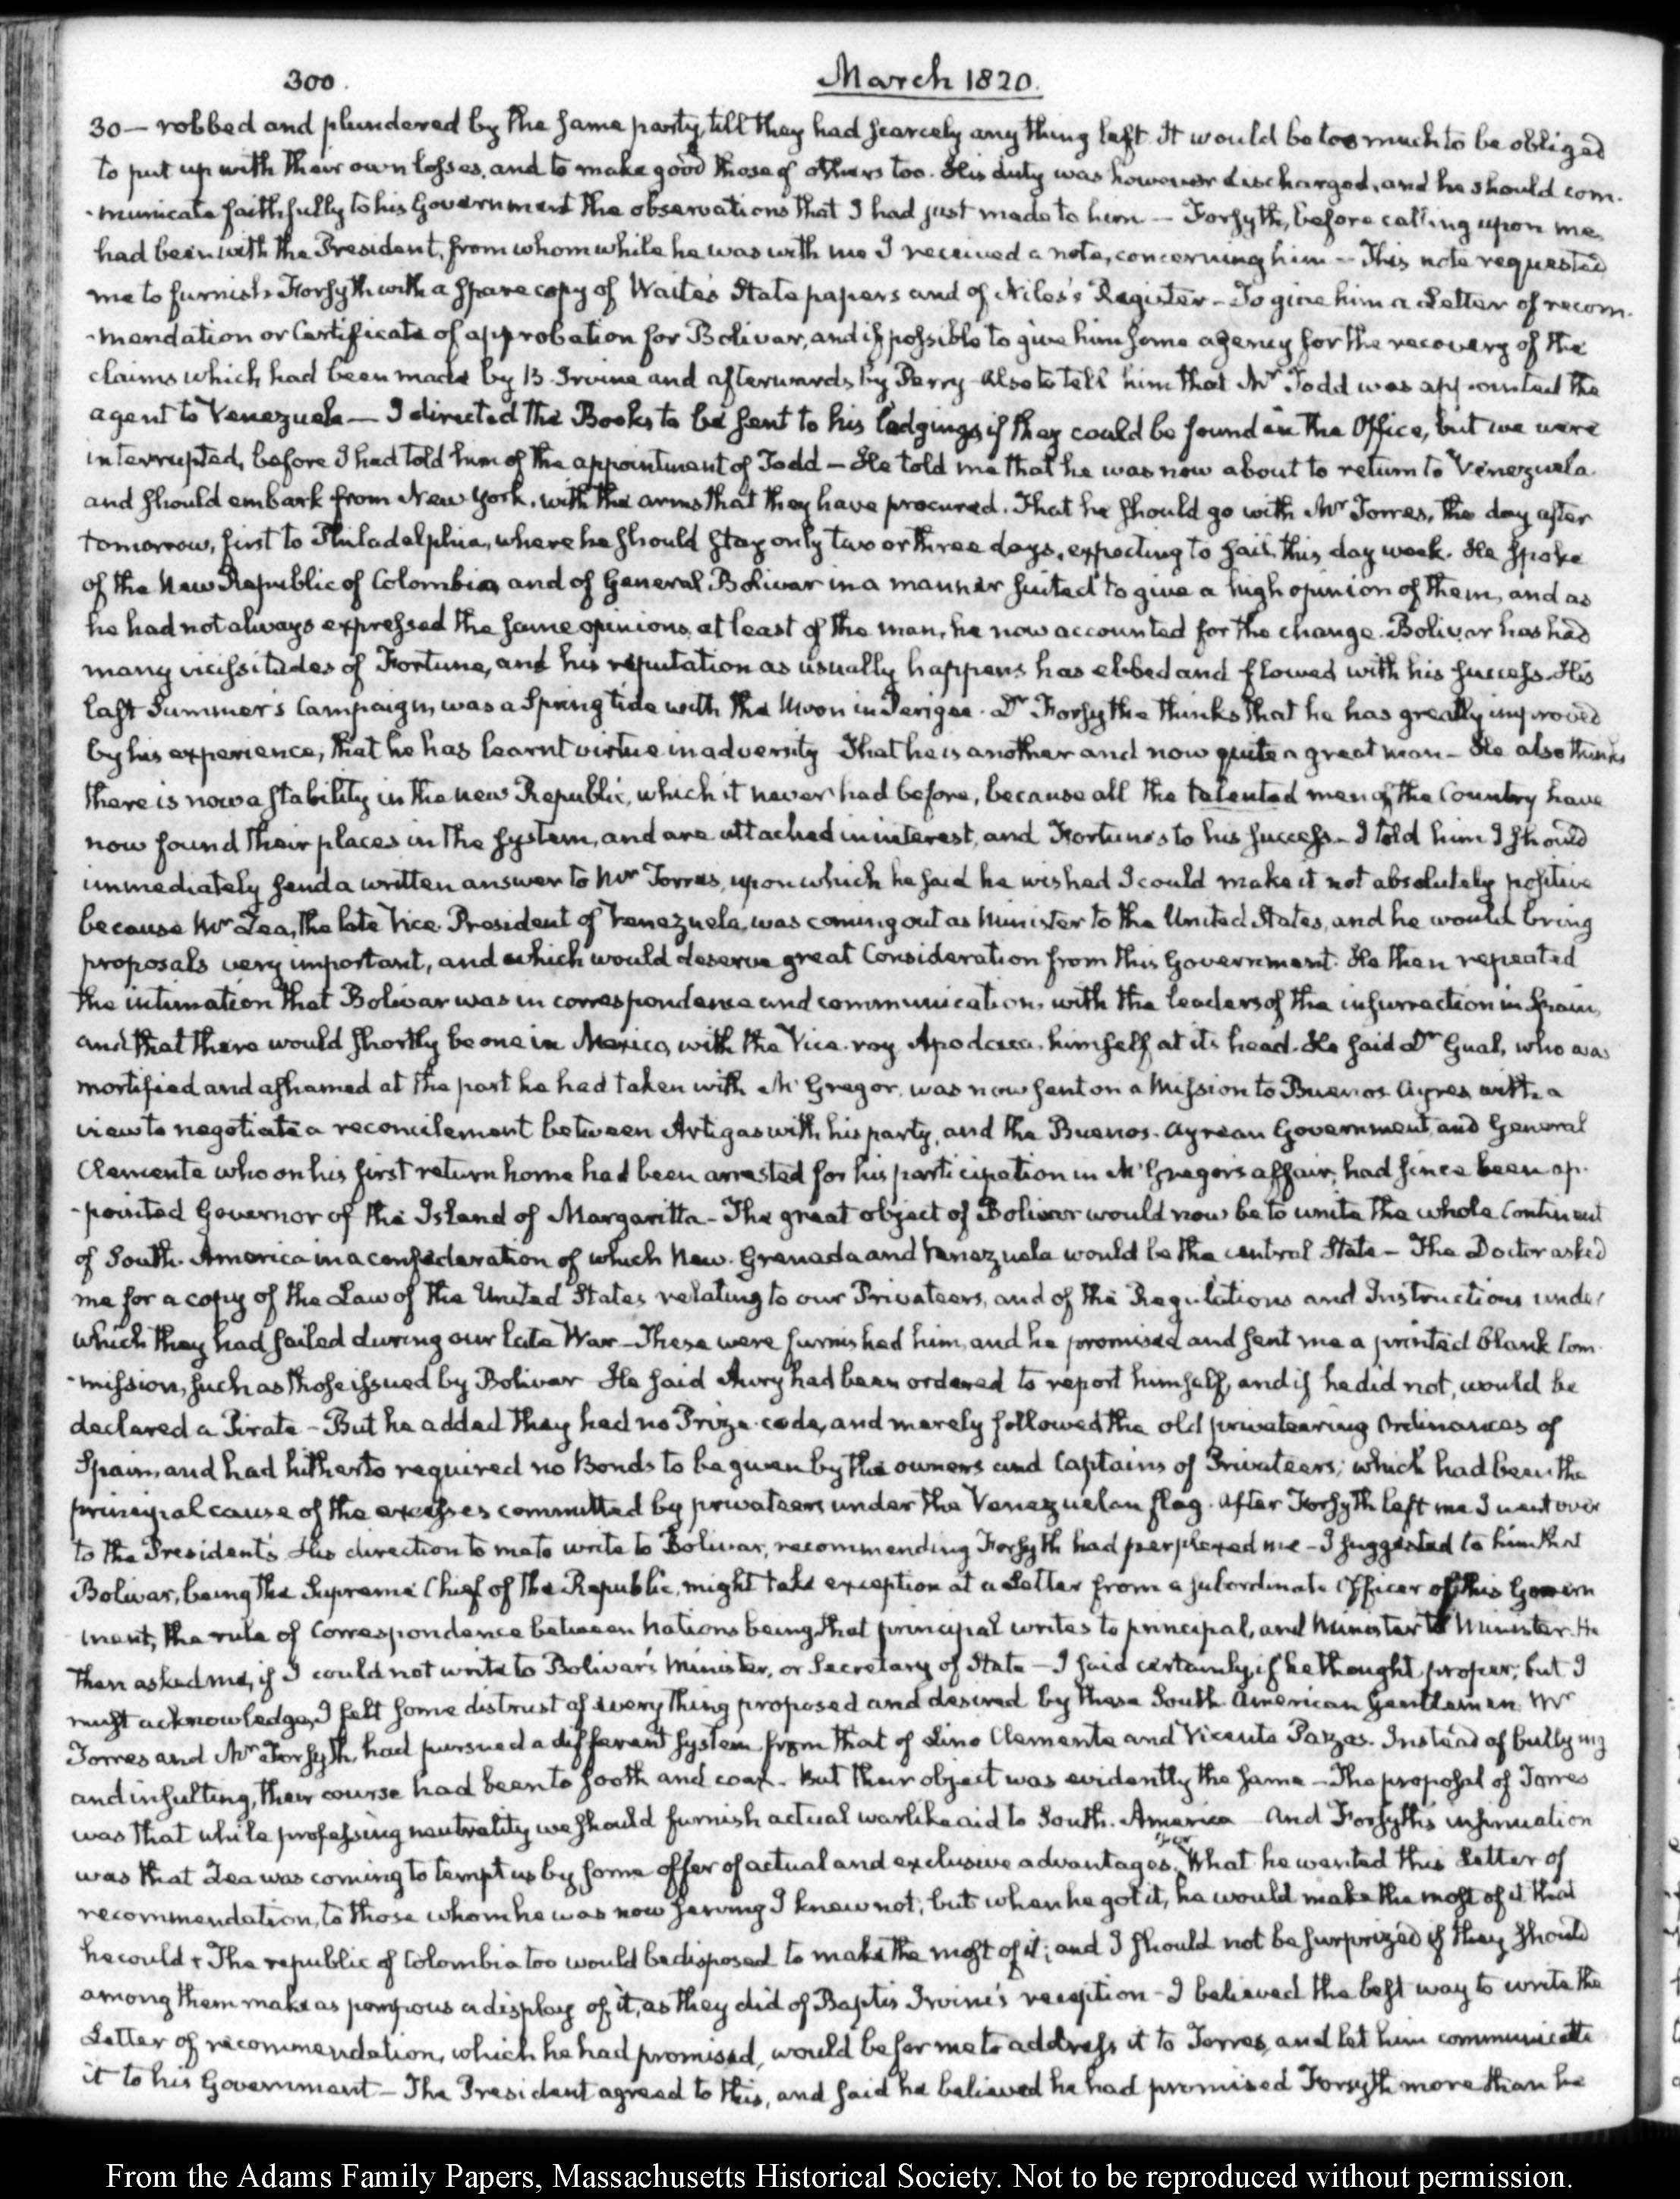 300.
March 1820.
30 — robbed and plundered by the same party, till they had scarcely any thing left. It would be too much to be obliged
to put up with their own losses, and to make good those of others too. His duty was however discharged, and he should com-
-municate faithfully to his Government the observations that I had just made to him — Forsyth, before calling upon me,
had been with the President, from whom while he was with me I received a note, concerning him — This note requested
me to furnish Forsyth with a spare copy of Waite's State papers and of Niles's Register — To give him a Letter of recom-
-mendation or Certificate of approbation for Bolivar, and if possible to give him some agency for the recovery of the
claims which had been made by B. Irvine and afterwards by Perry — Also to tell him that Mr Todd was appointed the
agent to Venezuela — I directed the Books to be sent to his lodgings if they could be found in the Office, but we were
interrupted, before I had told him of the appointment of Todd — He told me that he was now about to return to Venezuela
and should embark from New York, with the arms that they have procured. That he should go with Mr Torres, the day after
tomorrow, first to Philadelphia, where he should stay only two or three days, expecting to sail this day week. He spoke
of the New Republic of Colombia, and of General Bolivar in a manner suited to give a high opinion of them, and as
he had not always expressed the same opinions, at least of the man, he now accounted for the change. Bolivar has had
many vicissitudes of Fortune, and his reputation as usually happens has ebbed and flowed with his success. His
last Summer's Campaign, was a Spring tide with the Moon in Perigee. Dr Forsythe thinks that he has greatly improved
by his experience; that he has learnt virtue in adversity — That he is another and now quite a great man — He also thinks
there is now a stability in the new Republic, which it never had before, because all the talented men of the Country have
now found their places in the system, and are attached in interest, and Fortunes to his success — I told him I should
immediately send a written answer to Mr Torres, upon which he said he wished I could make it not absolutely positive
because Mr Zea, the late Vice President of Venezuela, was coming out as Minister to the United States, and he would bring
proposals very important, and which would deserve great Consideration from this Government. He then repeated
the intimation that Bolivar was in correspondence and communication, with the leaders of the insurrection in Spain,
and that there would shortly be one in Mexico, with the Vice-roy Apodaca, himself at its head. He said Dr Gual, who was
mortified and ashamed at the part he had taken with McGregor, was now sent on a Mission to Buenos Ayres with a
view to negotiate a reconcilement between Artigas with his party, and the Buenos-Ayrean Government, and General
Clemente who on his first return home had been arrested for his participation in McGregor's affair, had since been ap-
-pointed Governor of the Island of Margaritta — The great object of Bolivar would now be to unite the whole Continent
of South-America in a confederation of which New-Grenada and Venezuela would be the central State — The Doctor asked
me for a copy of the Law of the United States relating to our Privateers, and of the Regulations and Instructions under
which they had sailed during our late War — These were furnished him, and he promised and sent me a printed blank Com-
-mission, such as those issued by Bolivar — He said Aury had been ordered to report himself, and if he did not, would be
declared a Pirate — But he added they had no Prize-code, and merely followed the old privateering Ordinances of
Spain, and had hitherto required no Bonds to be given by the owners and Captains of Privateers; which had been the
principal cause of the excesses committed by privateers under the Venezuelan flag. After Forsyth left me I went over
to the President's. His direction to me to write to Bolivar, recommending Forsyth had perplexed me — I suggested to him that
Bolivar, being the Supreme Chief of the Republic, might take exception at a Letter from a subordinate Officer of this Govern
-ment; the rule of Correspondence between Nations being that principal writes to principal, and Minister to Minister. He
then asked me, if I could not write to Bolivar's Minister, or Secretary of State — I said certainly, if he thought proper; but I
must acknowledge, I felt some distrust of every thing proposed and desired by these South American Gentlemen. Mr
Torres and Mr Forsyth, had pursued a different system from that of Lino Clemente and Vicente Pazos. Instead of bullying
and insulting, their course had been to sooth and coax. But their object was evidently the same — The proposal of Torres
was that while professing neutrality we should furnish actual warlike aid to South-America — And Forsyth's insinuation
was that Zea was coming to tempt us by some offer of actual and exclusive advantages. What he wanted this Letter of
recommendation, to those whom he was now serving for I knew not; but when he got it, he would make the most of it that
he could & The republic of Colombia too would be disposed to make the most of it; and I should not be surprized if they should
among them make as pompous a display of it, as they did of Baptis Irvine's reception — I believed the best way to write the
Letter of recommendation, which he had promised, would be for me to address it to Torres, and let him communicate
it to his Government — The President agreed to this, and said he believed he had promised Forsyth more than he
From the Adams Family Papers, Massachusetts Historical Society. Not to be reproduced without permission.